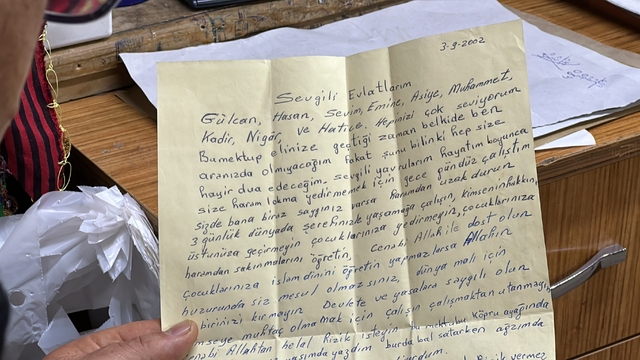 3-9-2002
Sevgili Evlatlarım
Gülcan, Hasan, Sevim, Emine, Asiye, Muhammet,
Kadir, Nigâr, ve Hatice, Hepinizi çok seviyorum
Bumektup elinize geçtiği zaman belkide ben
aranızda olmıyacağım fakat şunu bilinki hep size
hayir dua edeceğim. sevgili yavrularım hayatım boyunca
size haram lokma yedirmemek için gece gündüz çalıştım
sizde bana biraz saygınız varsa haramdan uzak durun
3 günlük dünyada şerefinizle yaşamağa çalışın, kimseninhakkın,
üstünüza geçirmeyin çocuklarınıza yedirmeyin, çocuklarınıza
haramdan sakınmalarını öğretin, Cenabı Allah ile dost olun
çocuklarınıza islam dinini öğretin yapmazlarsa Allahın
huzurunda siz mesul olmazsınız, dünya malı için
birinizi kırmayın Devlete ve yasalara saygılı olun
muhtaç olmamak için çalışın çalışmaktan utanmayın
Allahtan helal Rizik isteyin bu mektubu Köprü ayağında
yazdım burda bal satarken ağzımda